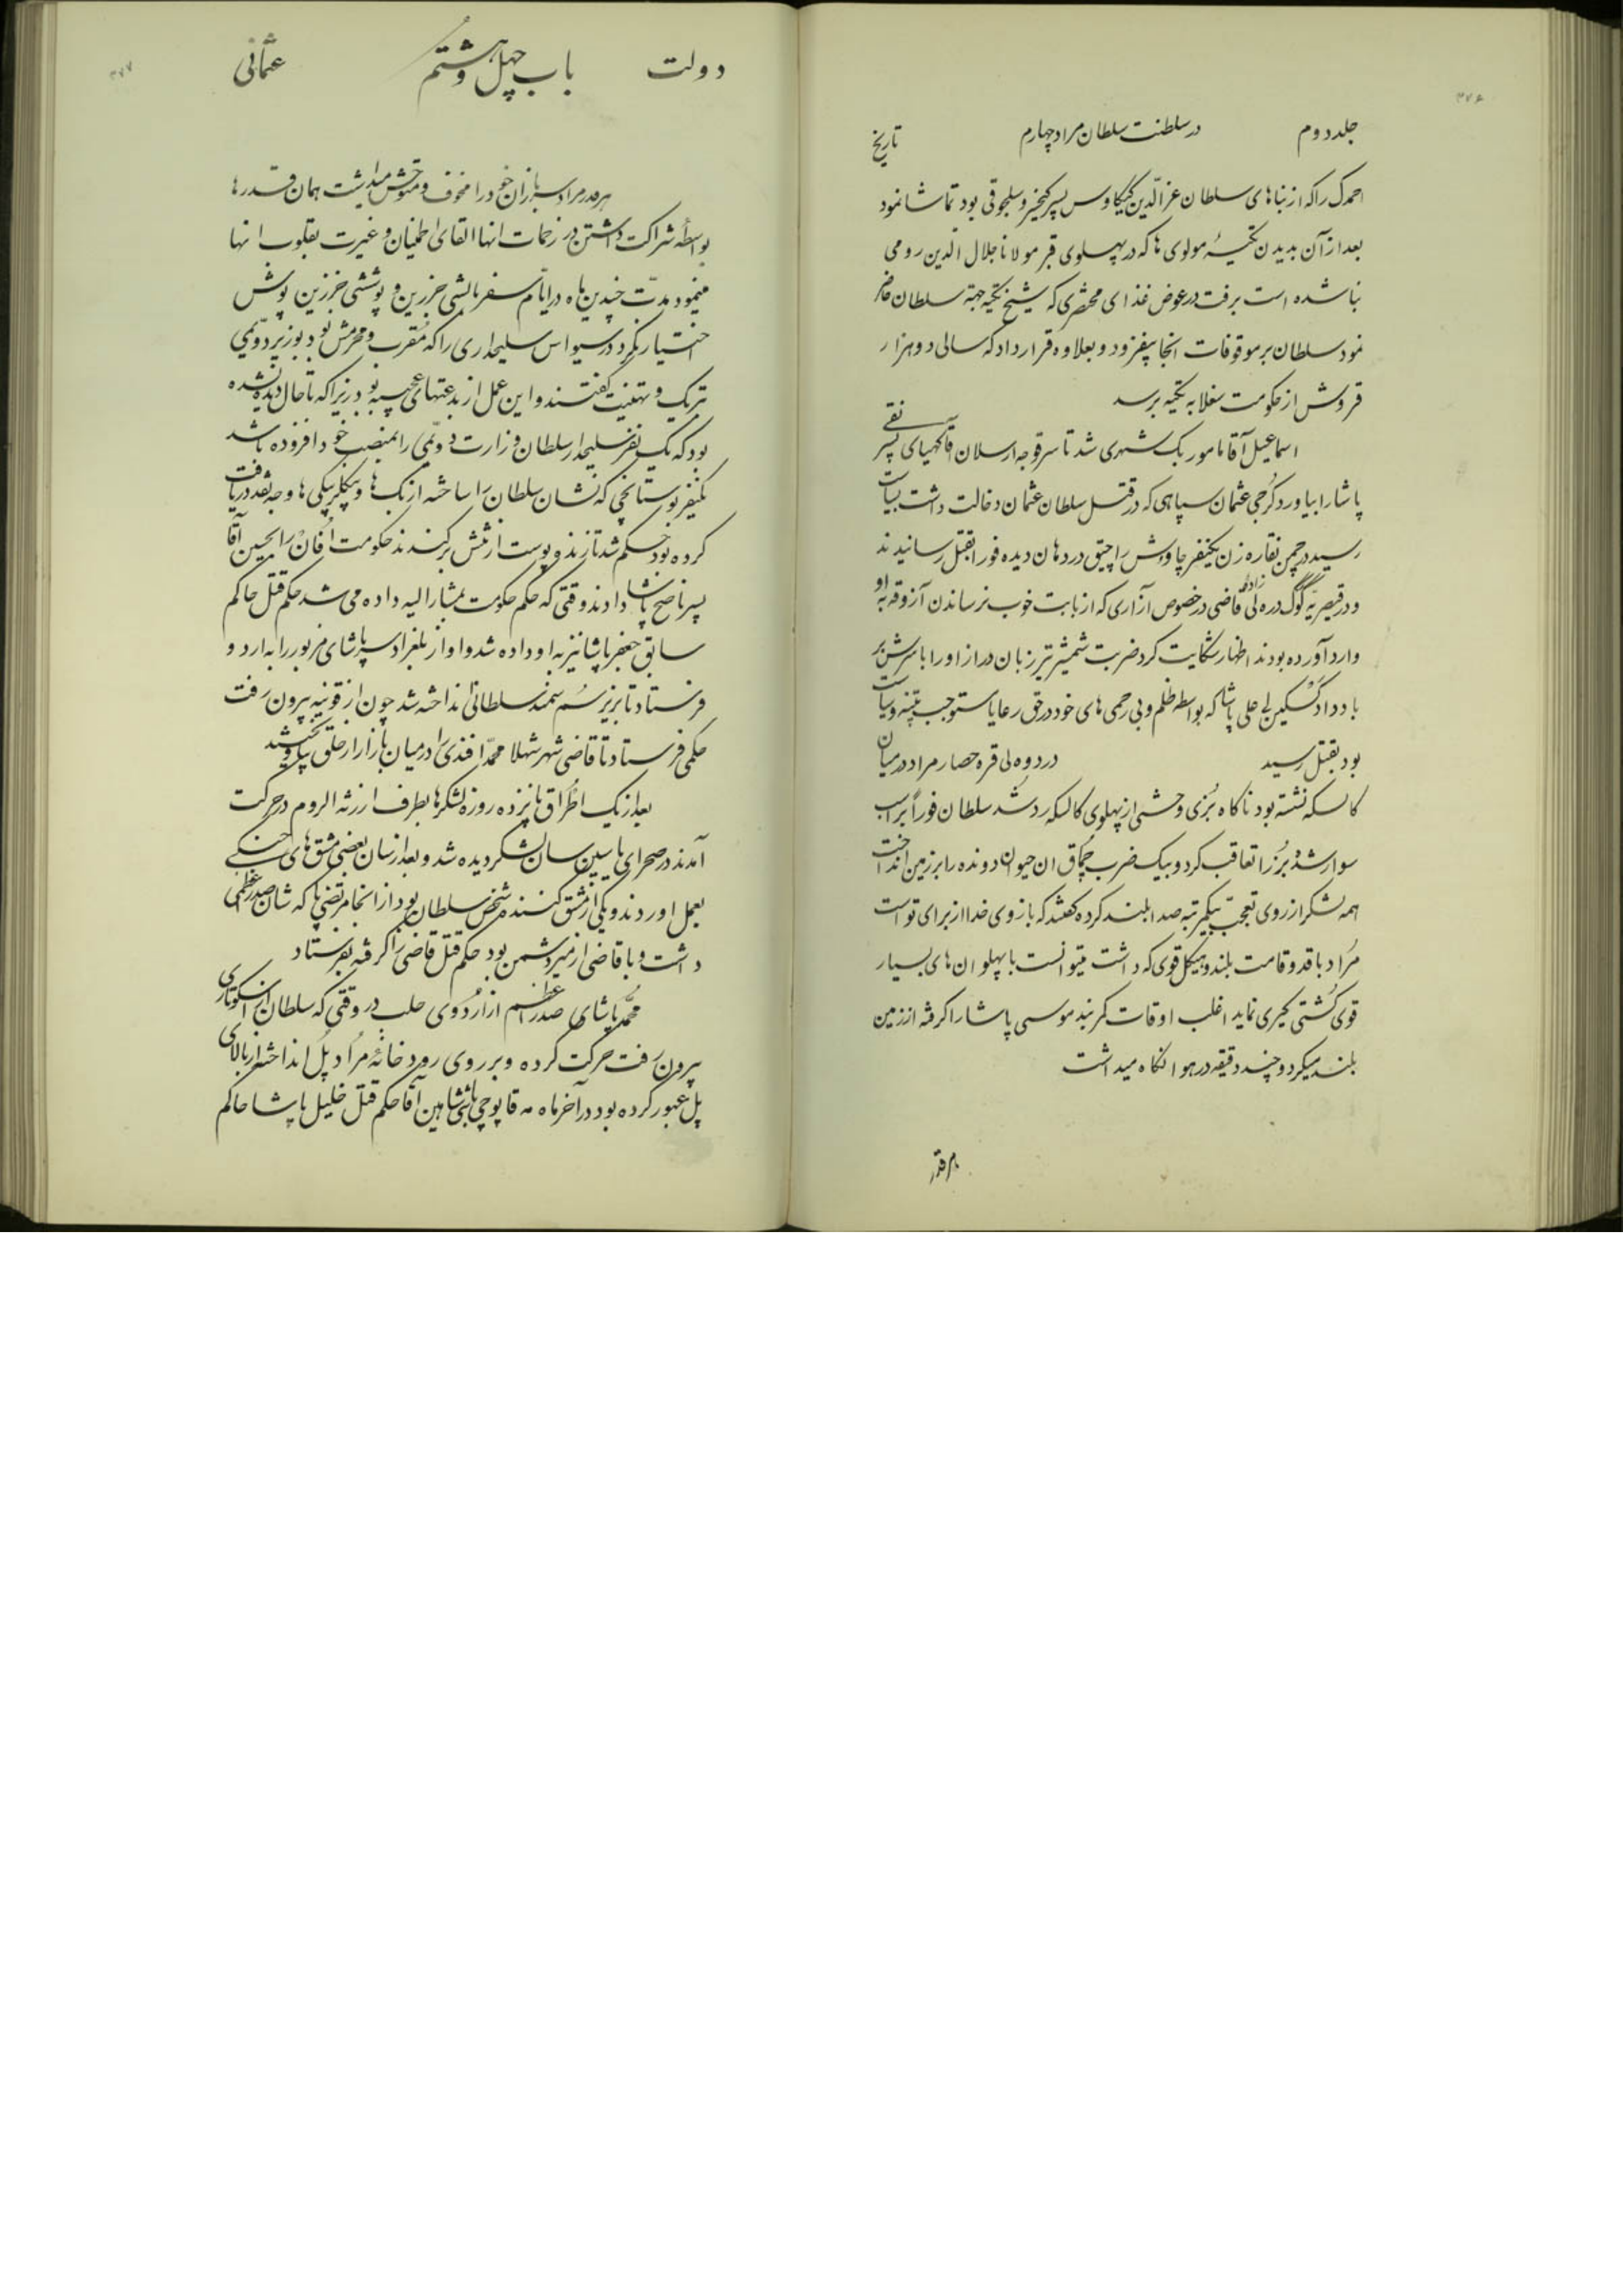 ۳۷۶
جلد دوم در سلطنت سلطان مراد چهارم تاریخ
احمدک را که از بناهای سلطان عزالدین کیکاوس پسر کیخسرو سلجوقی بود تماشا نمود
بعد از آن بدیدن تکیهٔ مولوی ها که در پهلوی قبر مولانا جلال الدین رومی
بنا شده است برفت در عوض غذای محقری که شیخ تکیه جهة سلطان حاضر
نمود سلطان بر موقوفات انجا بیفزود و بعلاوه قرار داد که سالی دو هزار
قروش از حکومت سغلا به تکیه برسد
اسماعیل آقا مامور بک شهری شد تا سر قوجه ارسلان آقا کهیای پسر نفعی
پاشا را بیاورد کرجی عثمان سپاهی که در قتل سلطان عثمان دخالت داشت بسیاست
رسید در چمن نقاره زن یکنفر چاوش را چپق در دهان دیده فورا بقتل رسانیدند
و در قیصریه گوک دره لی زاده قاضی در خصوص آزاری که از بابت خوب نرساندن آزوقه به او
وارد آورده بودند اظهار شکایت کرد ضربت شمشیر تیز زبان دراز او را با سرش بر
باد داد کسکین لی علی پاشا که بواسطه ظلم و بی رحمی های خود در حق رعایا مستوجب تنبیه و سیاست
بود بقتل رسید در دوه لی قره حصار مراد در میان
کالسکه نشسته بود ناگاه بزی وحشی از پهلوی کالسکه رد شد سلطان فوراً بر اسب
سوار شد و بز را تعاقب کرد و بیک ضرب چماق ان حیوان دونده را بر زمین انداخت
همه لشکر از روی تعجب بیکمرتبه صدا بلند کرده گفتند که بازوی خدا از برای تو است
مراد با قد و قامت بلند و هیکل قوی که داشت میتوانست با پهلوان های بسیار
قوی کشتی گیری نماید اغلب اوقات کمربند موسی پاشا را گرفته از زمین
بلند میکرد و چند دقیقه در هوا نگاه میداشت
هر قدر
۳۷۷
دولت باب چهل و هشتم عثمانی
هر قدر مراد سربازان خود را مخوف و متوحش میداشت همان قدر ها
بواسطهٔ شراکت داشتن در زحمات انها القای اطمینان و غیرت بقلوب انها
مینمود مدت چندین ماه در ایام سفر بالشی جز زین و پوششی جز زین پوش
اختیار نکرد در سیواس سلیحداری را که مقرب و محرمش بود بوزیر دومی
تبریک و تهنیت گفتند و این عمل از بدعتهای عجیبه بود زیرا که تا حال دیده نشده
بود که یک نفر سلیحدار سلطان وزارت دومی را بمنصب خود افزوده باشد
یکنفر بوستانچی که نشان سلطان را ساخته از بک ها و بیکلربیکی ها وجه نقد دریافت
کرده بود حکم شد تا زنده پوست از تنش برکنند حکومت اُفان را بحسین آقا
پسر ناصح پاشا دادند وقتی که حکم حکومت بمشارالیه داده می شد حکم قتل حاکم
سابق جعفر پاشا نیز به او داده شد و او از بلغراد سر پاشای مزبور را به اردو
فرستاد تا بزیر سم سمند سلطانی انداخته شد چون از قونیه بیرون رفت
حکمی فرستاد تا قاضی شهر شهلا محمد افندی را در میان بازار از حلق بیاویختند
بعد از یک اطراق پانزده روزه لشکرها بطرف ارزنة الروم در حرکت
آمدند در صحرای یاسین سان لشکر دیده شد و بعد از سان بعضی مشق های جنگی
بعمل اوردند و یکی از مشق کنندها شخص سلطان بود از انجا مرتضی پاشا که شان صدر اعظمی
داشت و با قاضی ازمیر دشمن بود حکم قتل قاضی را گرفته بفرستاد
محمد پاشای صدر اعظم از اردوی حلب در وقتی که سلطان از اسکوتاری
بیرون رفت حرکت کرده و بر روی رودخانهٔ مراد پل انداخته از بالای
پل عبور کرده بود در آخر ماه مه قاپوچی باشی شاهین آقا حکم قتل خلیل پاشا حاکم